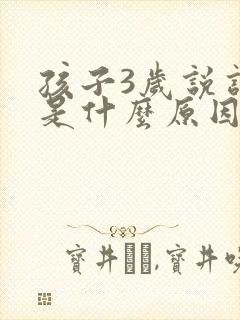 孩子3歲說
是什麼原因
寶井,寶井